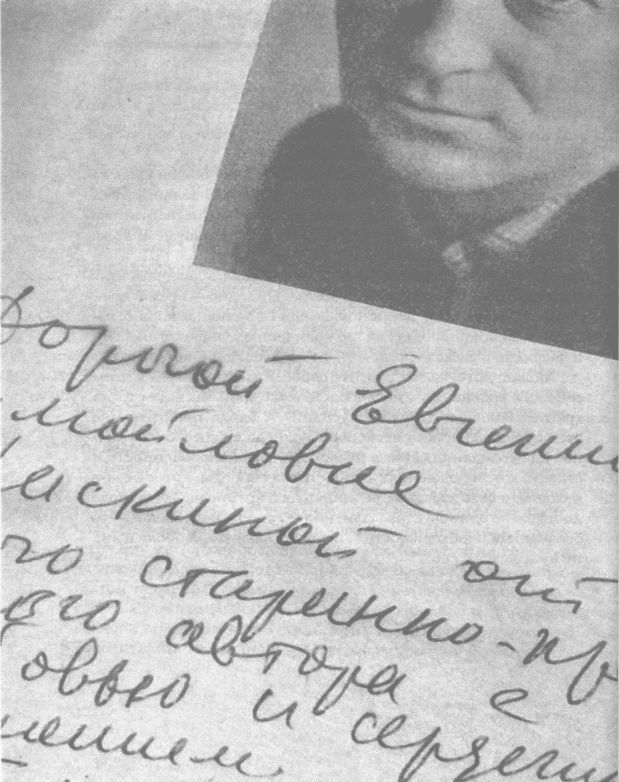 Дорогой Евгении
мойловне
аскиной от
го старинно-пр
ого автора с
овью и сердечн
ением